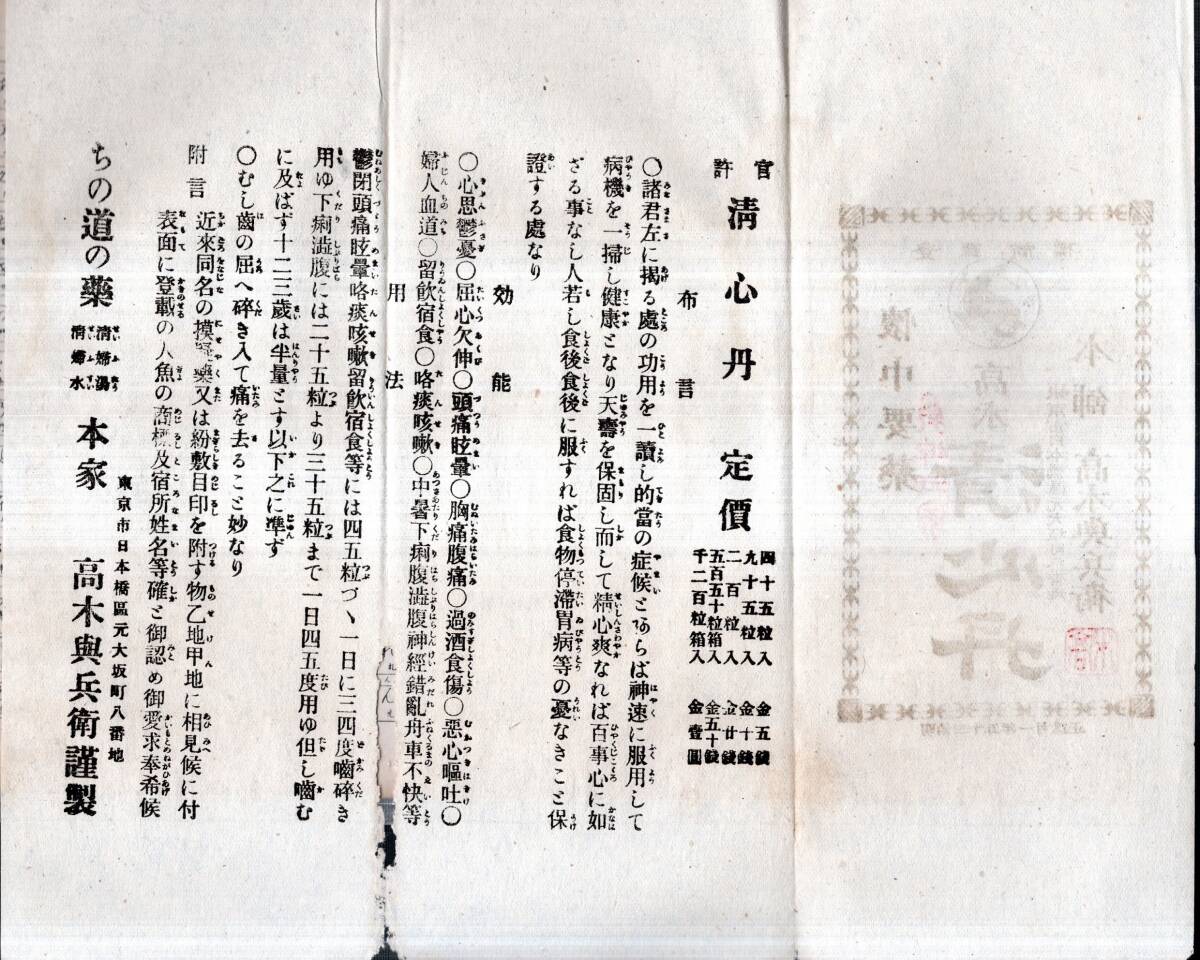 官許 清心丹 定價
四十五粒入 金五錢
九十五粒入 金十錢
二百粒入 金廿錢
五百五十粒箱入 金五十錢
千二百粒箱入 金壹圓
布言
〇諸君左に揭る處の功用を一讀し的當の症候とあらば神速に服用して
病機を一掃し健康となり天壽を保固し而して精心爽なれば百事心に如
ざる事なし人若し食後食後に服すれば食物停滯胃病等の憂なきこと保
證する處なり
効能
〇心思鬱憂〇屈心欠伸〇頭痛眩暈〇胸痛腹痛〇過酒食傷〇惡心嘔吐〇
婦人血道〇留飲宿食〇咯痰咳嗽〇中暑下痢腹澁腹神經錯亂舟車不快等
用法
鬱閉頭痛眩暈咯痰咳嗽留飲宿食等には四五粒づヽ一日に三四度嚙碎き
用ゆ下痢澁腹には二十五粒より三十五粒まで一日四五度用ゆ但し嚙む
に及ばず十二三歲は半量とす以下之に準ず
〇むし齒の屈へ碎き入て痛を去ること妙なり
附言
近來同名の摸擬藥又は紛敷目印を附す物乙地甲地に相見候に付
表面に登載の人魚の商標及宿所姓名等確と御認め御愛求奉希候
東京市日本橋區元大坂町八番地
ちの道の藥 淸婦湯 淸婦水 本家 高木與兵衛謹製